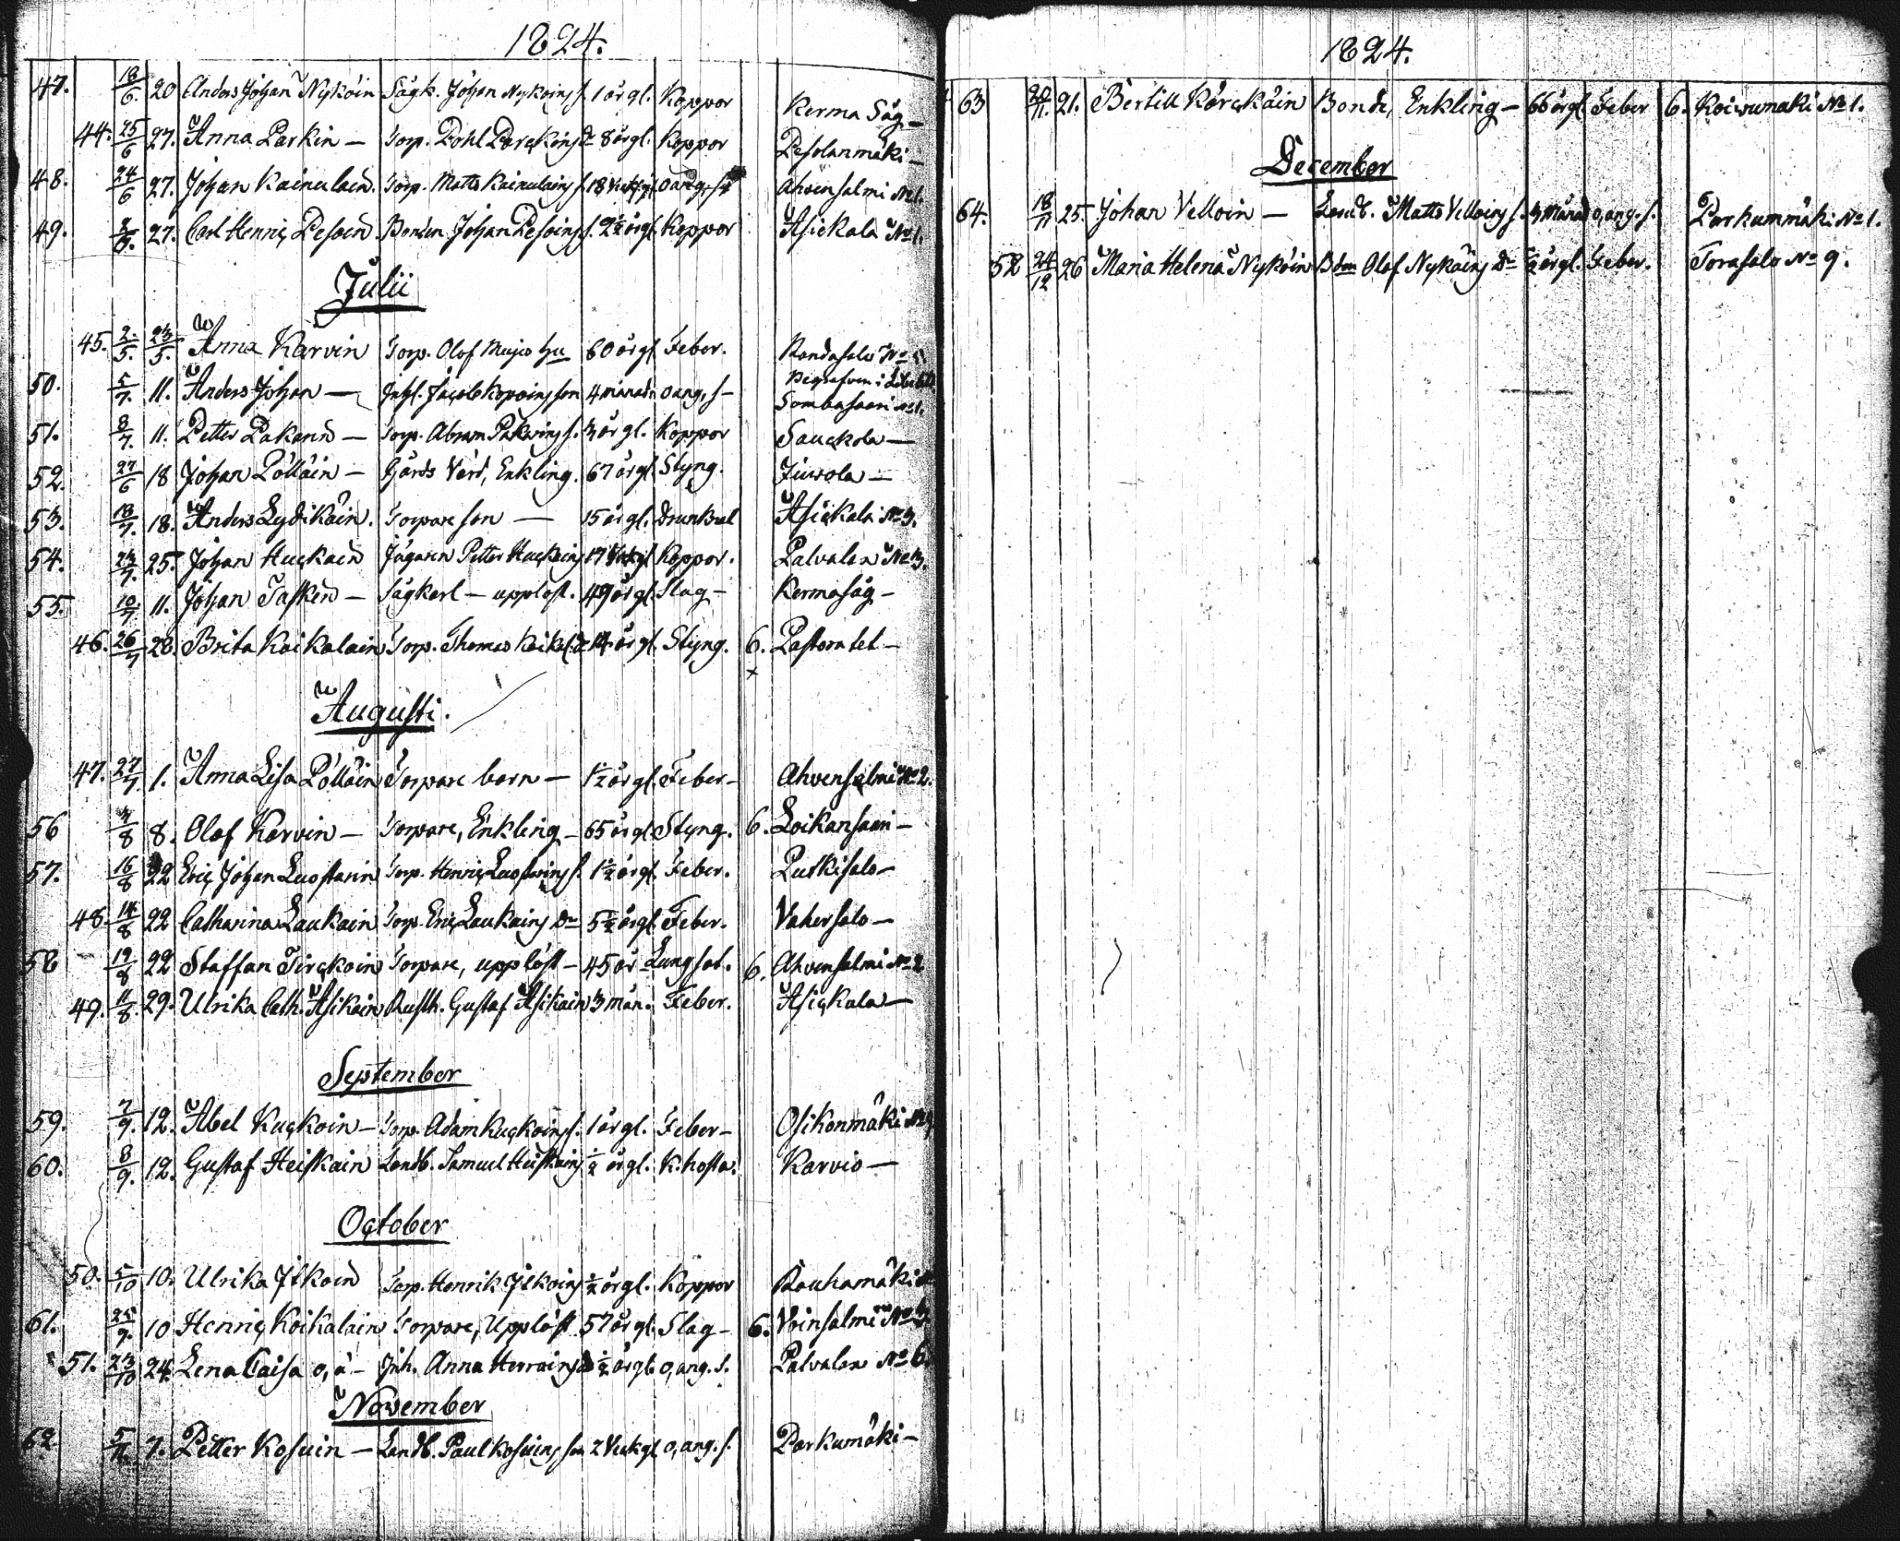 1824.
47. 18/6. 20 Anders Johan Nykäin Sågk. Johan Nykäins s. 1 årgl. Koppor Kerma Såg –
44. 25/6 27. Anna Parkin – Torp. Pohl Parckins dr 8 årgl. Koppor Pesolanmäki –
48. 24/6 27. Johan Kainulain. Torp. Matts Kainulains s. 18 Veckgl. o ang. s– Ahvensalmi No 1.
49. 27. Carl Henric Pesoin. Bonden Johan Pesoins s. 2½ årgl. Koppor Asickala No 1.
Julii
45. 2/5. 23/5. Anna Karvin Torp. Olof hu 60 årgl. Feber. Randasalo No
50. 5/7. 11. Anders Johan – Inhs. Jacob Kopoins son 4 månadr o ang. s– Begrafven i Sombasaari No 1.
51. 8/7. 11. Petter Pakarin – Torp. Abram Pakarins s. 3 årgl. Koppor Sauckola –
52. 27/6 18 Johan Pölläin – Gårds Värd, Enkling. 67 årgl. Styng. Juurola –
53. 13/7. 18. Anders Lydikäin. Torpare son – 15 årgl. Drunknat Asickala No 3.
54. 23/7. 25. Johan Huckain Jägaren Petter Huckains 17 Veckgl. Koppor. Palvalax No 3.
55. 10/7 11. Johan Taskin – Sågkarl – upplöst. 49 årgl. Slag – Kermasåg –
46. 26/7 28. Brita Koikalain Torp. Thomas Koikal. dr 14 årgl. Styng. 6. Pastoratet –
Augusti.
47. 27/7. 1. Anna Lisa Pölläin Torpare barn – 1½ årgl. Feber – Ahvensalmi No 2.
56 4/8 8. Olof Karvin – Torpare, Enkling – 65 årgl. Styng. 6. Loikansaari –
57. 16/8 22 Eric Johan Luostarin Torp. Henric Luostarins s. 1½ årgl. Feber. Purkisalo –
48. 14/8 22 Catharina Laukain Torp. Eric Laukains dr 5½ årgl. Feber. Vahersalo –
58 19/8 22 Staffan Tirckoin Torpare, upplöst – 45 år Lungsot. 6. Ahvensalmi No 2
49. 11/8. 29. Ulrika Cath. Asikain Rusth. Gustaf Asikain 3 mån. Feber. Asickala –
September
59. 7/9. 12. Abel Kuckoin – Torp. Adam Kuckoins s. 1 årgl. Feber – Osikonmäki No
60. 8/9. 12. Gustaf Heiskain Landb. Samuel Heiskains ½ årgl. K. hosta. Karvio –
October
50. 5/10 10. Ulrika Itkoin Torp. Henrik Itkoins ½ årgl. Koppor Rauhamäki
61. 25/9. 10 Henric Koikalain Torpare, Upplöst 57 årgl. Slag – 6. Voinsalmi No
51. 23/10 24. Lena Caisa o, ä – Inh. Anna Herrains ½ årgl. o, ang. s. Palvalax No 6.
November
62. 5/11. 7. Petter Kosuin – Landb. Paul Kosuins son 2 Veckgl. o, ang. s. Parkumäki –
1824.
63 20/11. 21. Bertill Kärckäin Bonde, Enkling – 66 årgl. Feber 6. Koivumäki No 1.
December
64. 18/11 25. Johan Velloin – Landb. Matts Velloins s. 3 månad o, ang. s. Parkummäki No 1.
52 24/12 26 Maria Helena Nykäin Bdn Olof Nykäins dr ½ årgl. Feber. Torasalo No 9.